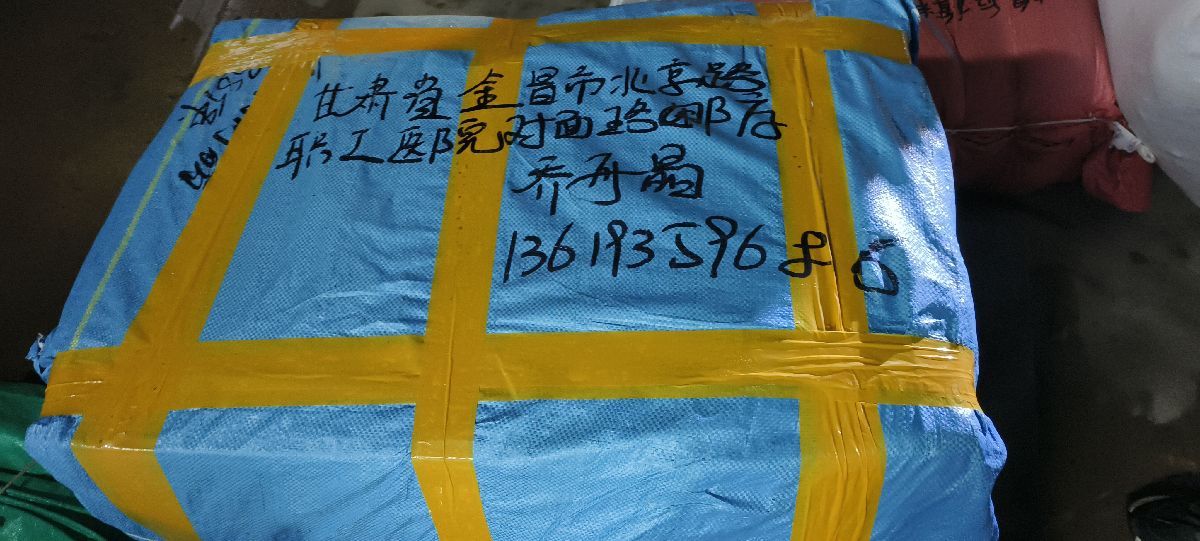 甘肃省金昌市北京路
职工医院对面珞娜店
乔再晶
13619359680